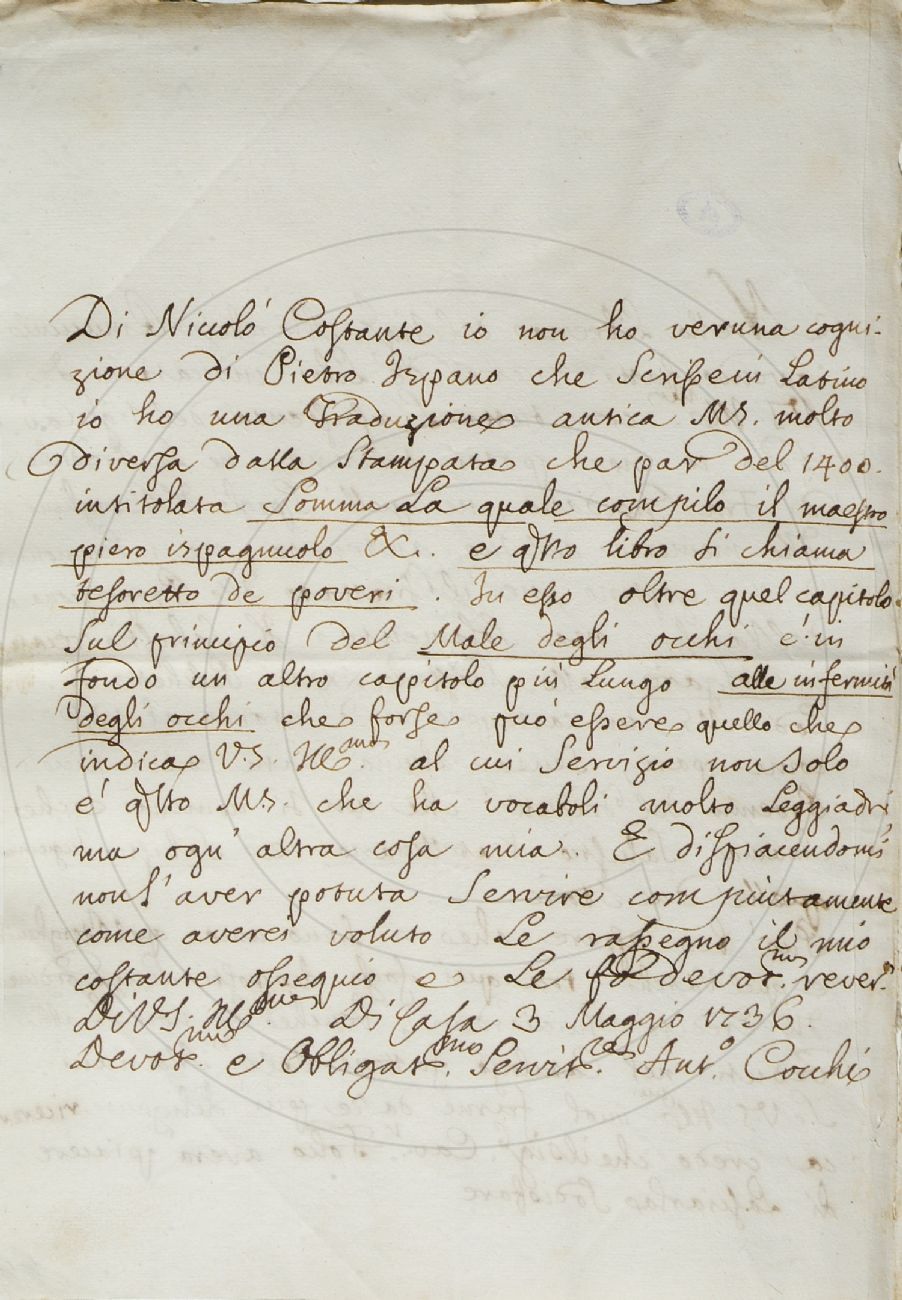 Di Niccolò Costante io non ho veruna cogni-
zione di Pietro Ispano che scrisse in Latino
io ho una Traduzione antica MS. molto
diversa dalla Stampata che par del 1400.
intitolata Somma La quale compilo il maestro
piero ispagnuolo &c. e qsto libro si chiama
tesoretto de poveri. In esso oltre quel capitolo
sul principio del Male degli occhi é in
fondo un altro capitolo più Lungo alle infermità
degli occhi che forse può essere quello che
indica V.S. Illma. al cui Servizio non solo
é qsto MS. che ha vocaboli molto Leggiadri
ma ogn' altra cosa mia. E dispiacendomi
non L'aver potuta Servire compiutamente
come averei voluto Le rassegno il mio
costante ossequio e Le fo devotma. rever.
Di VS. Illma. Di Casa 3 Maggio 1736.
Devotmo. e Obligatmo. Servitre. Anto. Cocchi